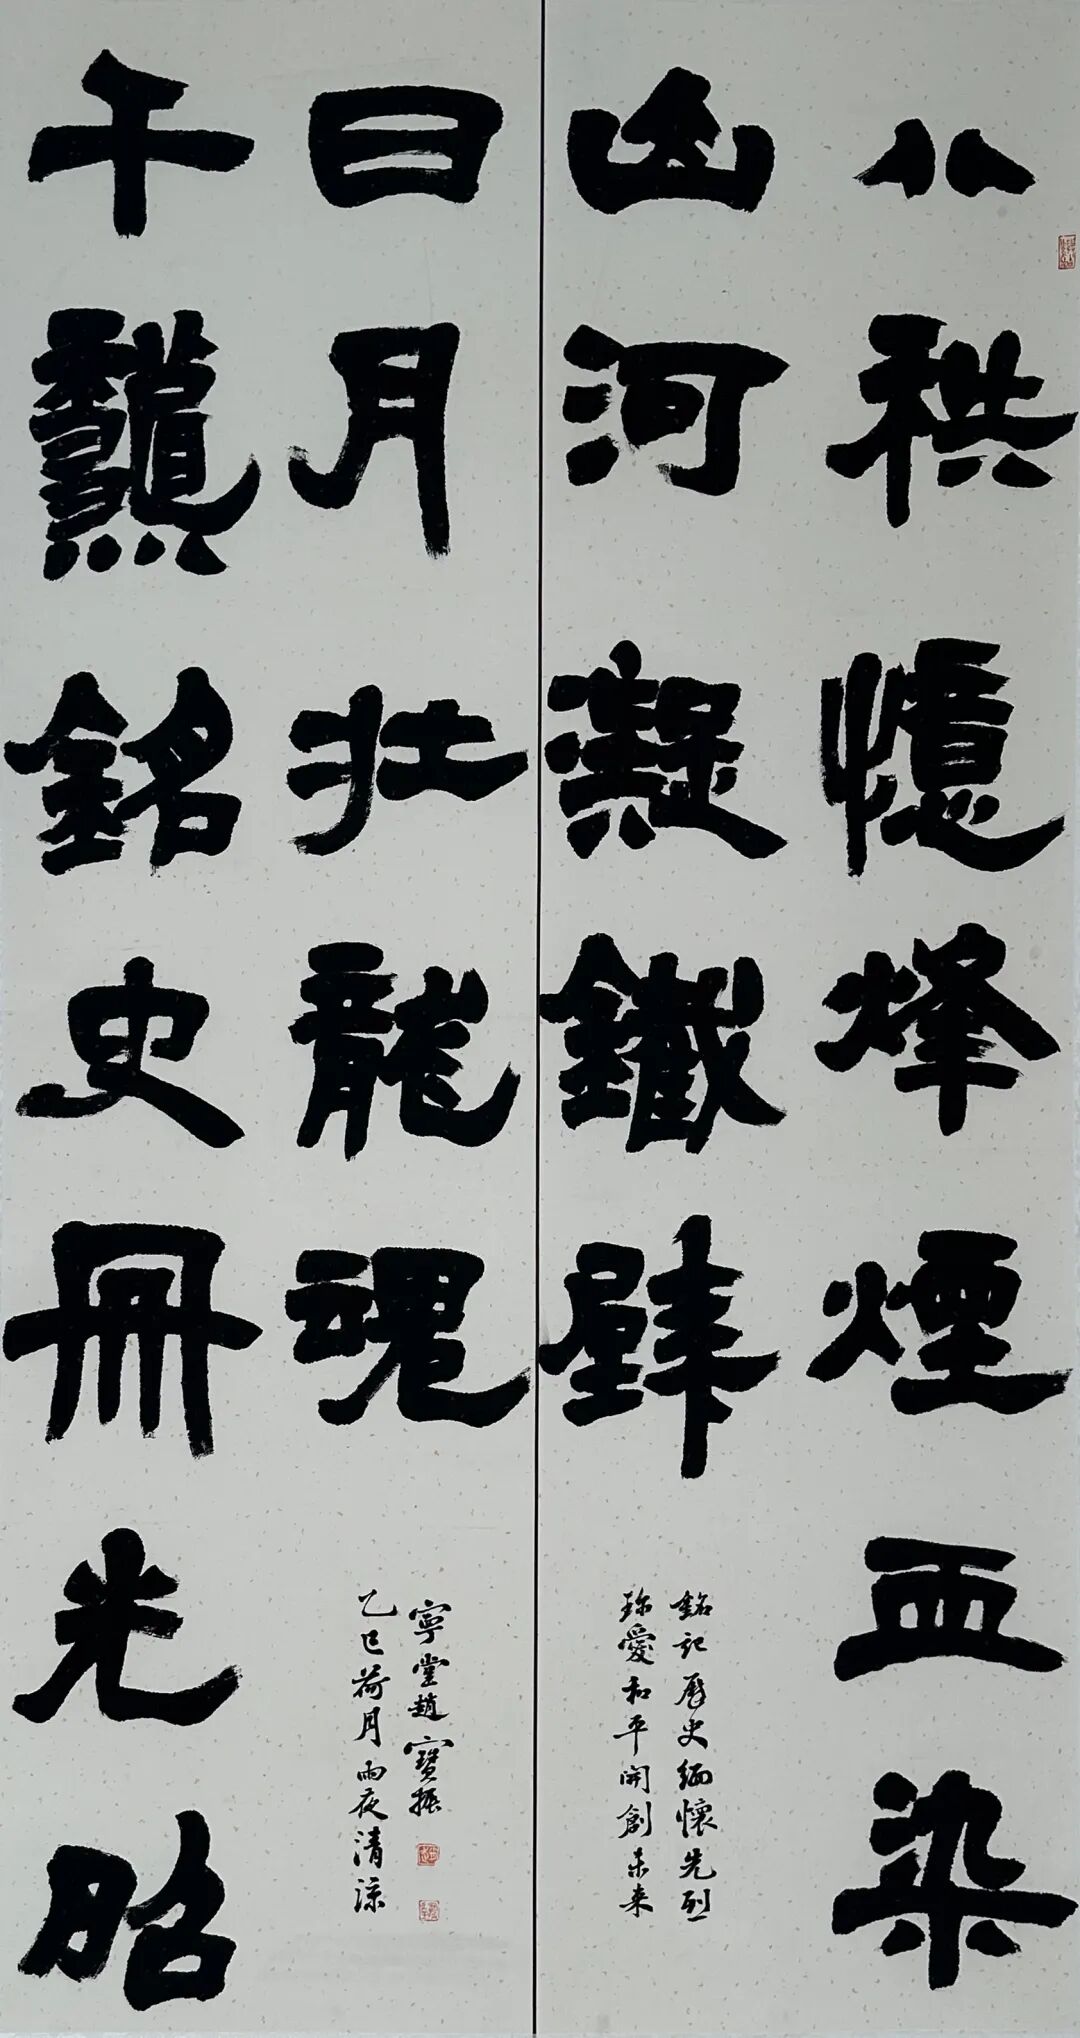 八秩憶烽煙血染
山河凝鐵壁
銘記歷史緬懷先烈
珍愛和平開創未來
千秋銘史冊光昭
日月壯龍魂
乙巳荷月雨夜清涼
寧堂趙寶振